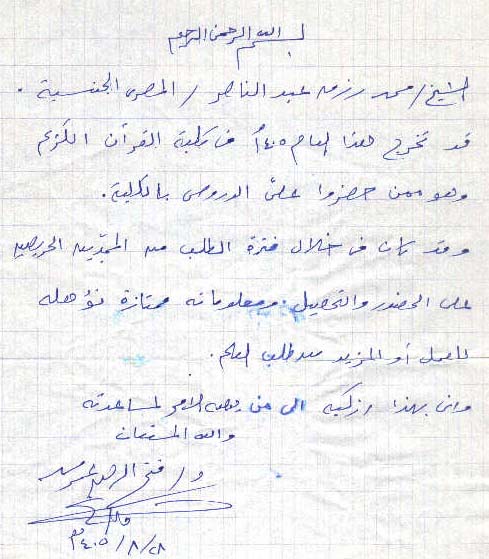 بسم الله الرحمن الرحيم
الشيخ / محمد رزق عبد الناصر / المصري الجنسية .
قد تخرج هذا العام ١٤٠٥ من كلية القرآن الكريم
وهو ممن حضروا عليّ الدروس بالكلية .
وقد كان في خلال فترة الطلب من المجدين الحريصين
على الحضور والتحصيل . ومعلوماته ممتازة تؤهله
للعمل أو المزيد من طلب العلم .
واني بهذا ازكيه الى من يهمه الامر لمساعدته
والله المستعان
د /
١٤٠٥/٨/٢٨